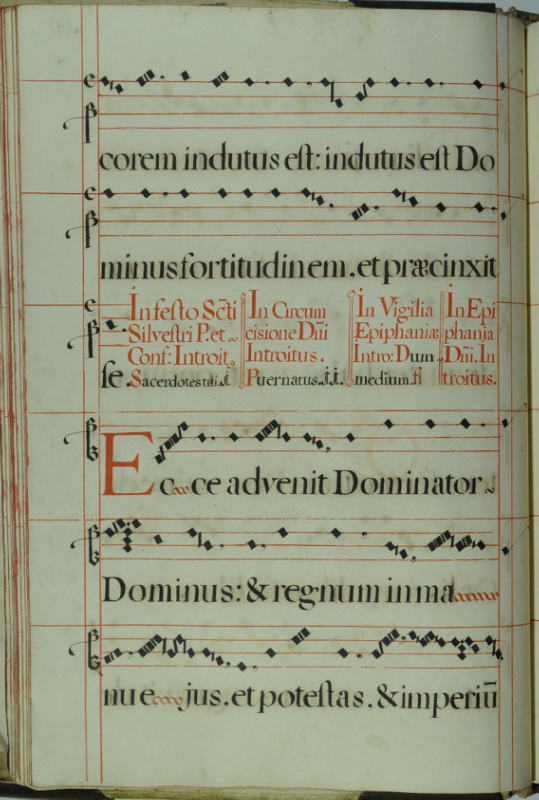 corem indutus est: indutus est Do
minus fortitudinem. et præcinxit
In festo Scti
Silvestri P. et
Conf: Introit,
Sacerdotes tui.
In Circum
cisione Dñi
Introitus.
Puer natus.
In Vigilia
Epiphaniæ
Intro: Dum
medium.
In Epi
phania
Dñi. In
troitus.
se.
Ecce advenit Dominator
Dominus: & regnum in ma
nu ejus. et potestas. & imperiū